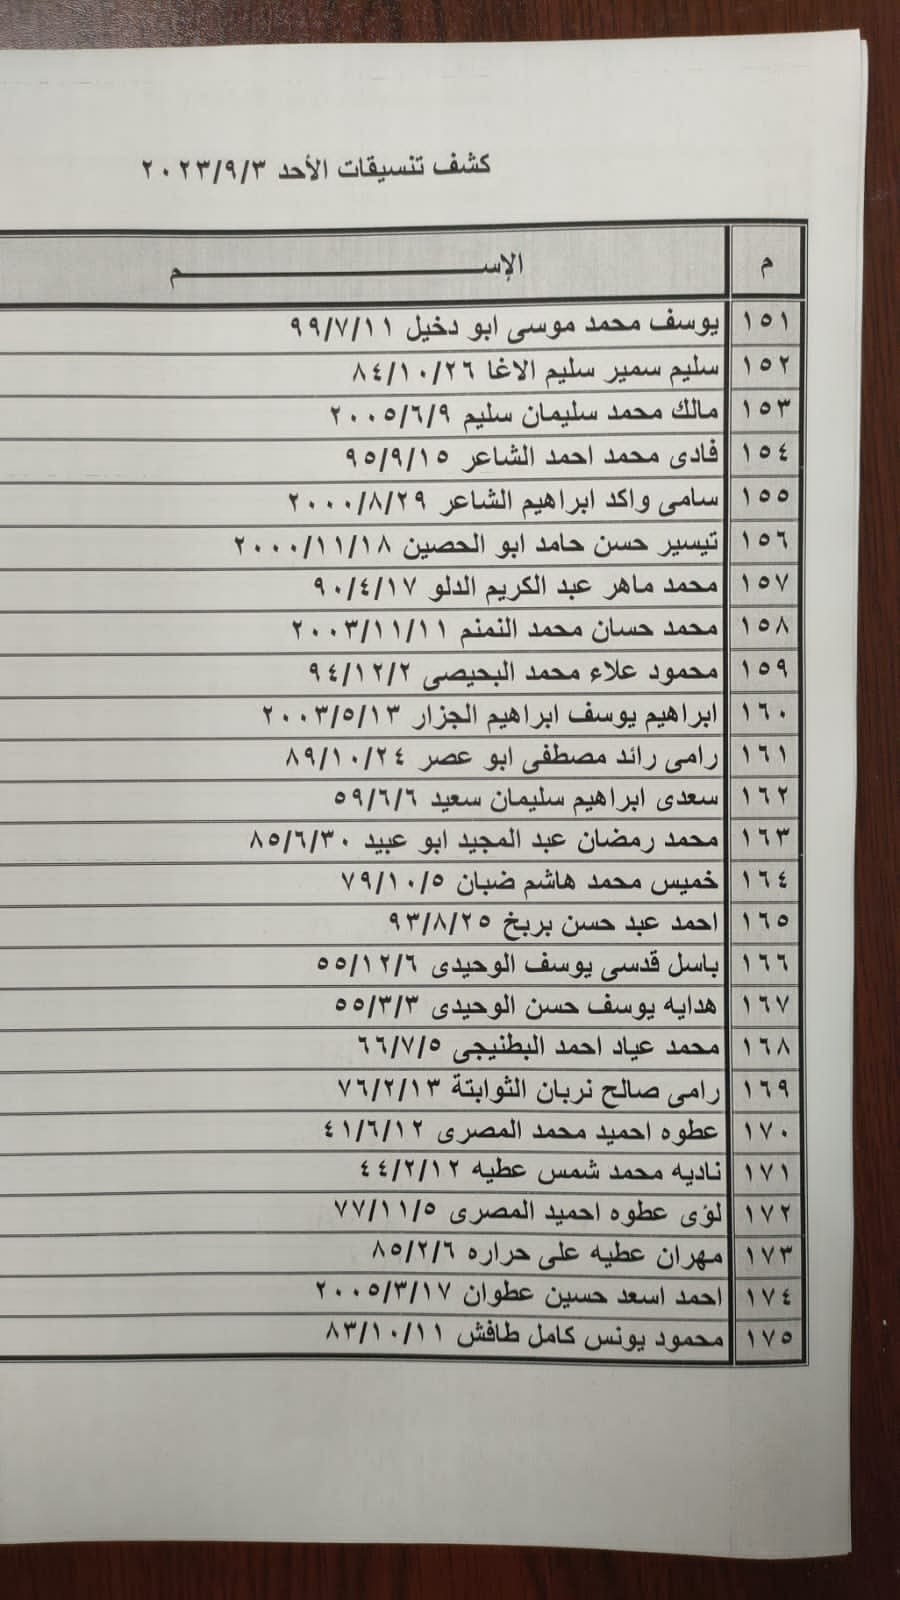 كشف تنسيقات الأحد ٢٠٢٣/٩/٣
م الإســـــــــــــــــــــم
١٥١ يوسف محمد موسى ابو دخيل ٩٩/٧/١١
١٥٢ سليم سمير سليم الاغا ٨٤/١٠/٢٦
١٥٣ مالك محمد سليمان سليم ٢٠٠٥/٦/٩
١٥٤ فادى محمد احمد الشاعر ٩٥/٩/١٥
١٥٥ سامى واكد ابراهيم الشاعر ٢٠٠٠/٨/٢٩
١٥٦ تيسير حسن حامد ابو الحصين ٢٠٠٠/١١/١٨
١٥٧ محمد ماهر عبد الكريم الدلو ٩٠/٤/١٧
١٥٨ محمد حسان محمد النمنم ٢٠٠٣/١١/١١
١٥٩ محمود علاء محمد البحيصى ٩٤/١٢/٢
١٦٠ ابراهيم يوسف ابراهيم الجزار ٢٠٠٣/٥/١٣
١٦١ رامى رائد مصطفى ابو عصر ٨٩/١٠/٢٤
١٦٢ سعدى ابراهيم سليمان سعيد ٥٩/٦/٦
١٦٣ محمد رمضان عبد المجيد ابو عبيد ٨٥/٦/٣٠
١٦٤ خميس محمد هاشم ضبان ٧٩/١٠/٥
١٦٥ احمد عبد حسن بربخ ٩٣/٨/٢٥
١٦٦ باسل قدسى يوسف الوحيدى ٥٥/١٢/٦
١٦٧ هدايه يوسف حسن الوحيدى ٥٥/٣/٣
١٦٨ محمد عياد احمد البطنيجى ٦٦/٧/٥
١٦٩ رامى صالح نربان الثوابتة ٧٦/٢/١٣
١٧٠ عطوه احميد محمد المصرى ٤١/٦/١٢
١٧١ ناديه محمد شمس عطيه ٤٤/٢/١٢
١٧٢ لؤى عطوه احميد المصرى ٧٧/١١/٥
١٧٣ مهران عطيه على حراره ٨٥/٢/٦
١٧٤ احمد اسعد حسين عطوان ٢٠٠٥/٣/١٧
١٧٥ محمود يونس كامل طافش ٨٣/١٠/١١